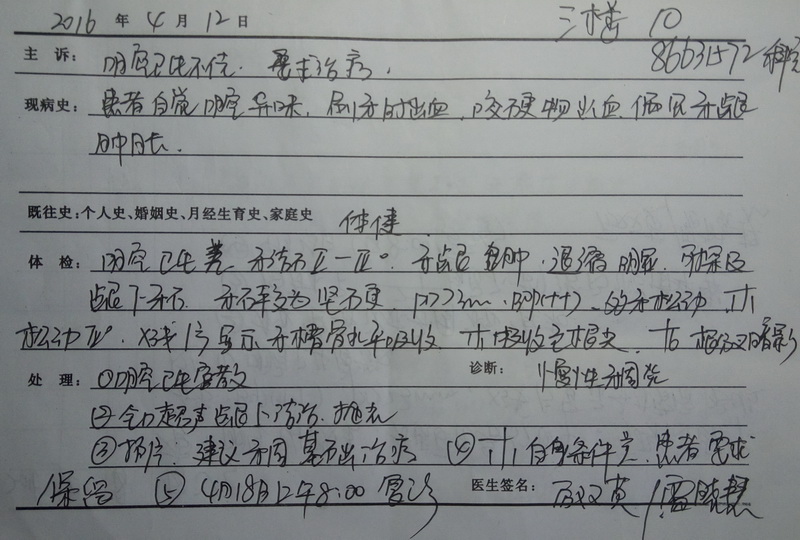 2016 年 4 月 12 日 三楼 10
主 诉: 口腔卫生不佳. 要求治疗. 86631572
现病史: 患者自觉口腔异味, 刷牙时出血, 咬硬物出血. 偶见牙龈
肿胀.
既往史:个人史、婚姻史、月经生育史、家庭史 体健.
体 检: 口腔卫生差 牙结石Ⅱ-Ⅲ°. 牙龈红肿. 退缩明显. 可探及
龈下牙石. 牙石较为坚硬. PD>3mm. BOP(++). 牙松动.
松动Ⅱ°. X线片显示牙槽骨水平吸收. 吸收至根尖. 暗影
处 理: ①口腔卫生宣教 诊断: 慢性牙周炎
②全口超声龈上洁治.
③拍片: 建议牙周基础治疗 ④ 自身条件差. 患者要求
保留 ⑤ 4月18日上午8:00复诊 医生签名: